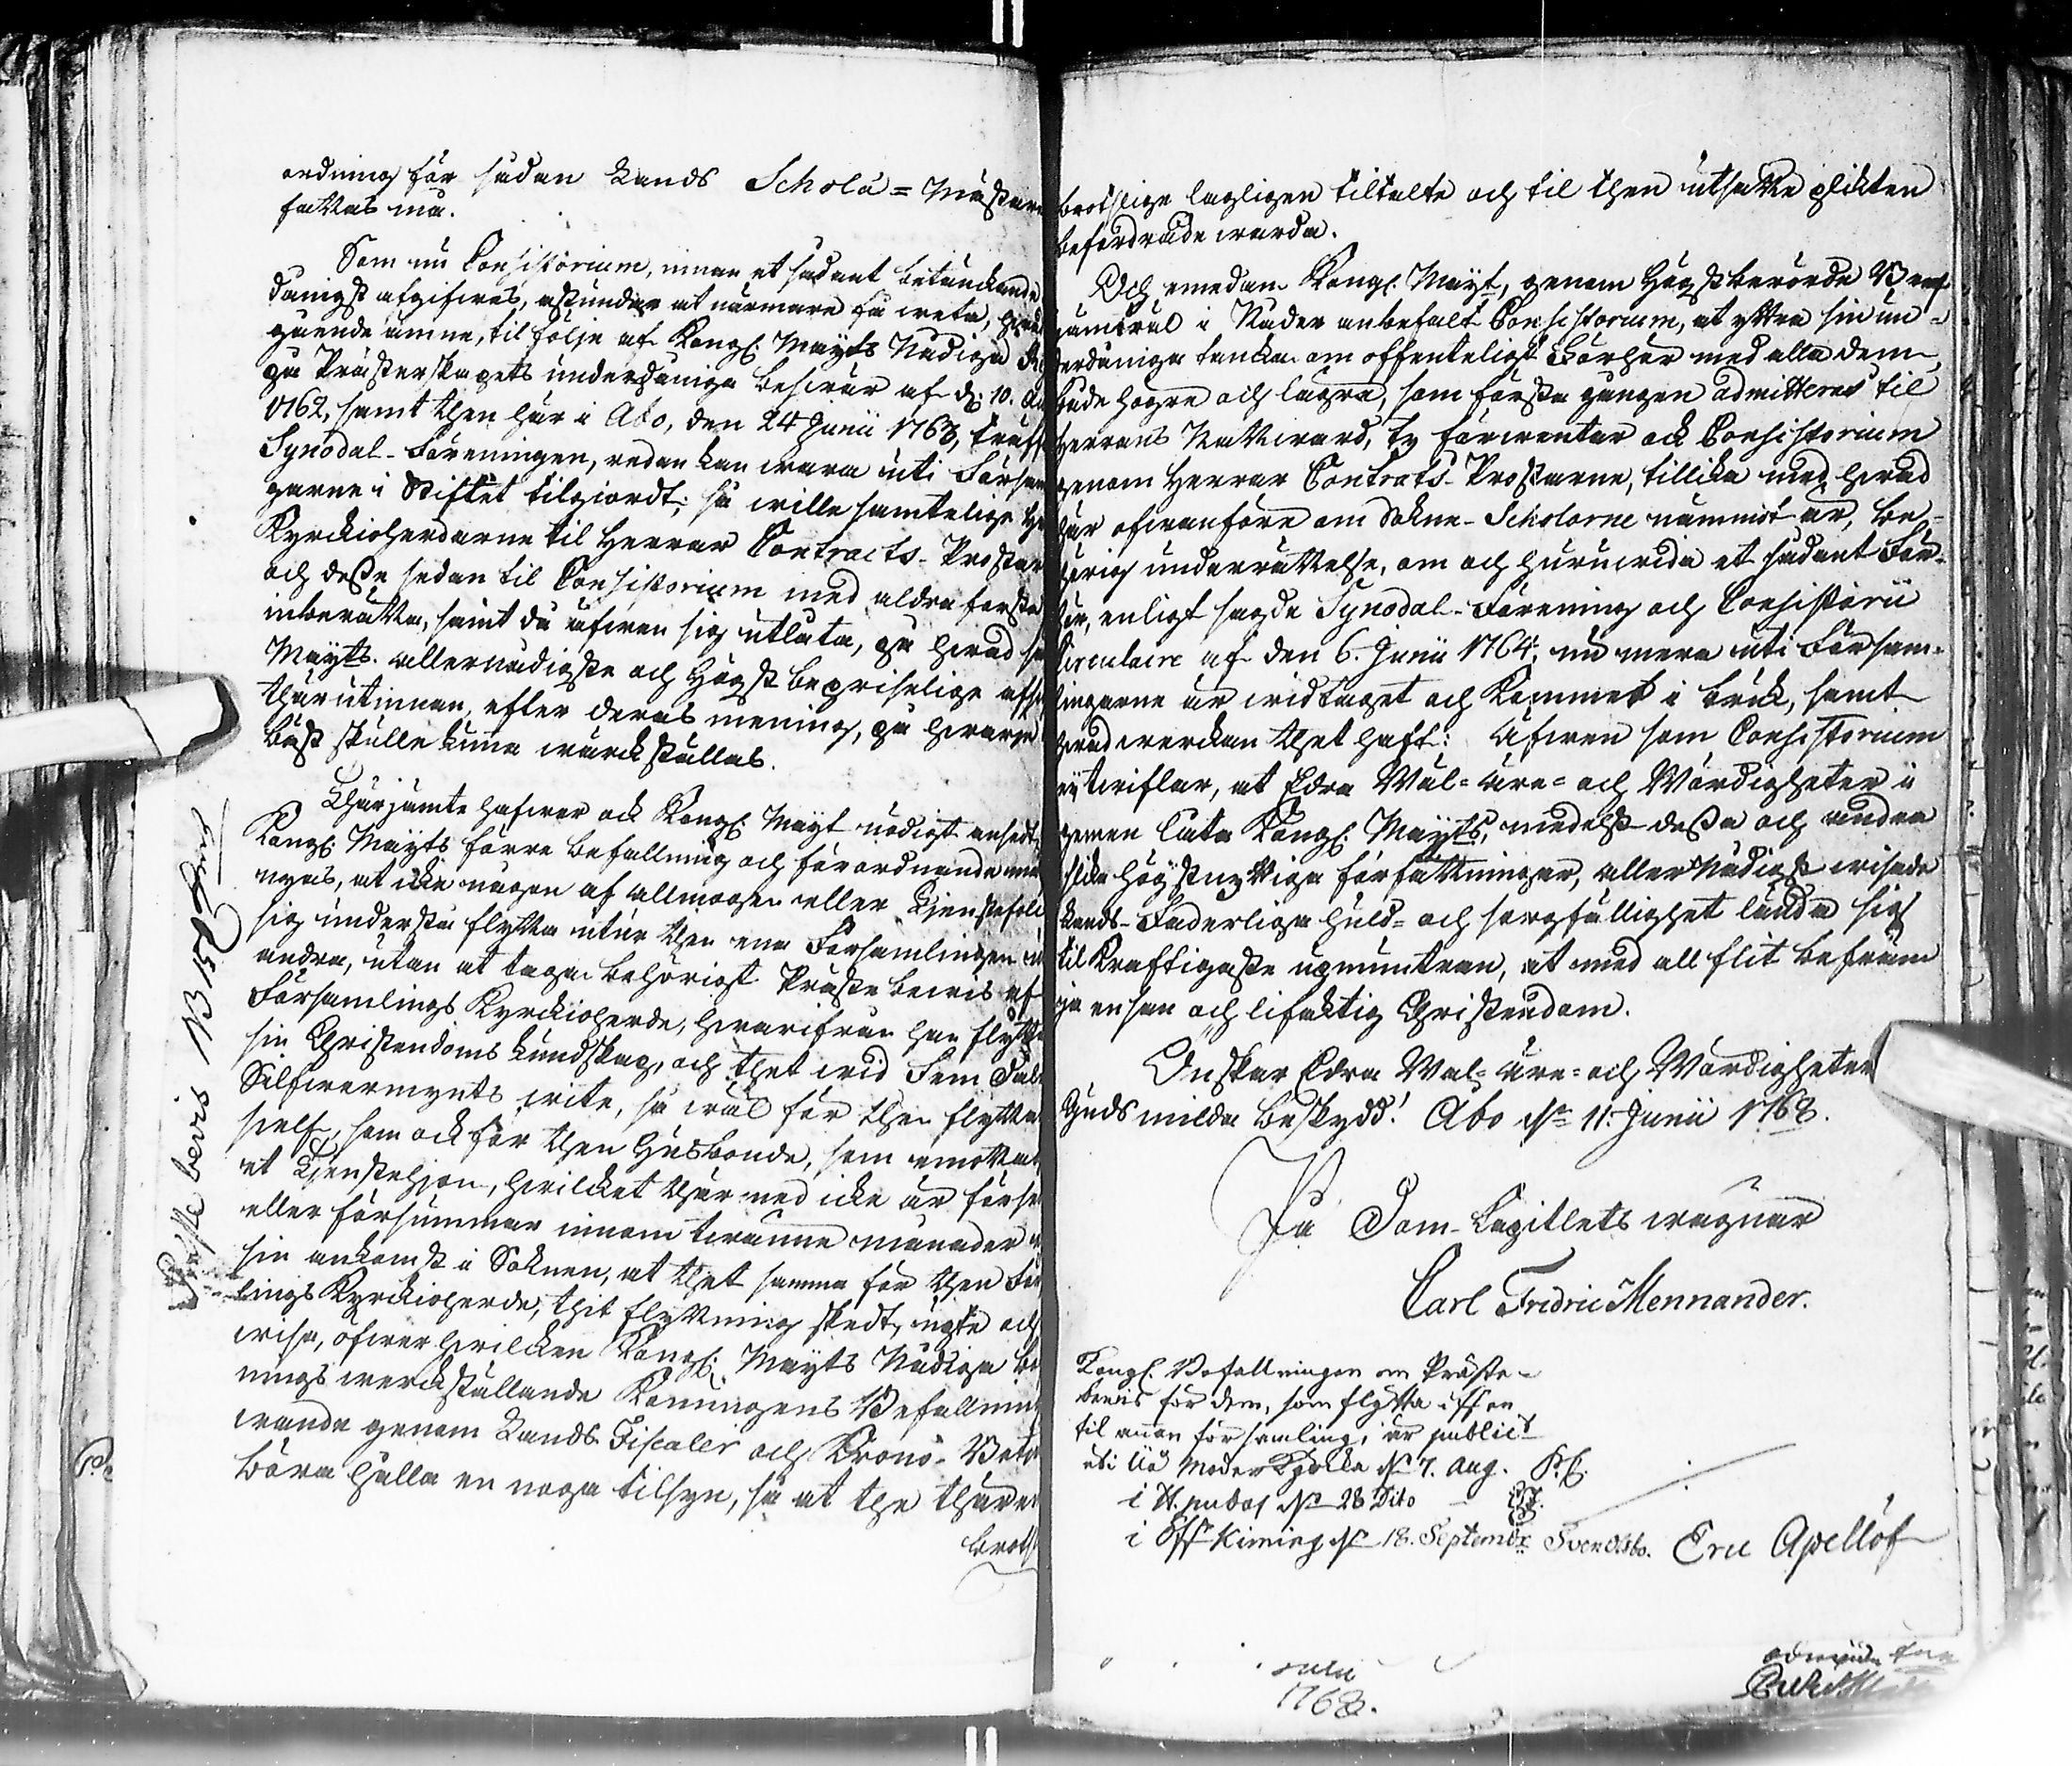 ordning för sådan Lands Scholä=Mästare
fattas må.
Som nu Consistorium, innan et sådant betänckande
dånigst afgifwes, åstundar at närmare få weta, hwad
gående ämne, til följe af Kongl. Mayts Nådiga
på Prästerskapets underdåniga beswär af d. 10.
1762, samt then här i Åbo, den 24 Junii 1763, träff
Synodal-Föreningen, redan kan wara uti Försam
garne i Stiftet tilgiordt; så wille samtelige
Kyrckioherdarne til Herrar Contracts-Prostar
och desse sedan til Consistorium med aldraförsta
inberätta, samt då äfwen sig utlåta, på hwad
Mayts. allernådigste och högst beprislige afse
thärutinnan, efter deras mening, på hwarje
bäst skulle kunna wärckställas.
Thärjämte hafwer ock Kongl. Mayt nödigt ansedt,
Kongl. Mayts förre befallning och förordnande
nyas, at icke någon af allmogen eller Tjenstefolk
sig understå flytta utur then ena Församlingen
andra, utan at taga behörigt Präste bewis af
Församlings Kyrckioherde, hwarifrån han flytt
sin Christendoms kundskap, och thet wid Fem Dal
Silfwermynts wite, så wäl för then flytta
sielf, som ock för then Husbonde, som emottar
et Tjenstehjon, hwilcket thär med icke är förse
eller försummar innom twänne månader
sin ankomst i Soknen, at thet samma för then För
lings Kyrckioherde, thit flyttning skedt, upte och
wisa, öfwer hwilcken Kongl. Mayts Nådiga be
nings werckställande Konungens Befallning
wande genom Lands Fiscaler och Krono-Betj
böra hålla en noga tilsyn, så at the thäremot
brots
Präste bevis NB
brotslige lagligen tiltalte och til then utsatte plickten
befordrade warda.
Och emedan Kongl. Mayt, genom högstberörde Bref
jämwäl i Nåder anbefalt Consistorium, at yttra sin un=
derdåniga tancka om offenteligt Förhör med alla dem,
både högre och lägre, som första gången admitteras til
Herrans Nattward, ty förwentar ock Consistorium
genom Herrar Contracts-Prostarne, tillika med hwad
här ofwanföre om Sokne-Scholorne nämnt är, be=
hörig underrättelse, om och huruwida et sådant För=
hör, enligt sagde Synodal-Förening och Consistorii
Circulaire af den 6. Junii 1764, nu mera uti Försam=
lingarne är widtaget och kommet i bruk, samt
hwad werckan thet haft: Äfwen som Consistorium
ej twiflar, at Edra Wäl=äre= och Wördigheter ju
gemen låta Kongl. Mayts, medelst dessa och andra
slika högstnyttiga författningar, allernådigst wisade
Lands-Faderliga huld= och sorgfällighet lända sig
til kraftigaste upmuntran, at med all flit befräm
ja en san och lifaktig Christendom.
Önskar Edra Wäl=äre=och Wördigheter
Guds milda beskydd! Åbo d. 11. Junii 1768.
På Dom-Capitlets wägnar
Carl Fridric Mennander.
Kongl. Befallningen om Präste-
bewis för dem, som flytta ifrån en
til annan församling, är public
uti Moder Kyrcka d. 7. Aug.
i d. 28 Dito
i Kiming d. 18. Septembr Svendsbo. Eric Apellöf
1768.